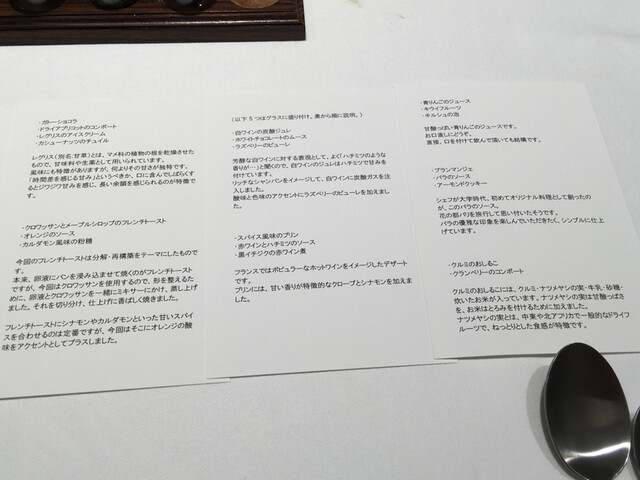 ・ガトーショコラ
・ドライアプリコットのコンポート
・レグリスのアイスクリーム
・カシューナッツのチュイル
レグリス(別名:甘草)とは、マメ科の植物の根を乾燥させた
もので、甘味料や生薬として用いられています。
風味にも特徴がありますが、何よりその甘さが独特です。
「時間差を感じる甘み」というべきか、口に含んでしばらくす
るとジワジワ甘みを感じ、長い余韻を感じられるのが特徴で
す。
・クロワッサンとメープルシロップのフレンチトースト
・オレンジのソース
・カルダモン風味の粉糖
今回のフレンチトーストは分解・再構築をテーマにしたもので
す。
本来、卵液にパンを浸み込ませて焼くのがフレンチトースト
ですが、今回はクロワッサンを使用するので、形を整えるた
めに、卵液とクロワッサンを一緒にミキサーにかけ、蒸し上げ
ました。それを切り分け、仕上げに香ばしく焼きました。
フレンチトーストにシナモンやカルダモンといった甘いスパイ
スを合わせるのは定番ですが、今回はそこにオレンジの酸
味をアクセントとしてプラスしました。
(以下5つはグラスに盛り付け。奥から順に説明。)
・白ワインの炭酸ジュレ
・ホワイトチョコレートのムース
・ラズベリーのピューレ
芳醇な白ワインに対する表現として、よく「ハチミツのような
香りが…」と聞くので、白ワインのジュレはハチミツで甘みを
付けています。
リッチなシャンパンをイメージして、白ワインに炭酸ガスを注
入しました。
酸味と色味のアクセントにラズベリーのピューレを加えまし
た。
・スパイス風味のプリン
・赤ワインとハチミツのソース
・黒イチジクの赤ワイン煮
フランスではポピュラーなホットワインをイメージしたデザート
です。
プリンには、甘い香りが特徴的なクローブとシナモンを加えま
した。
・青りんごのジュース
・キウイフルーツ
・キルシュの泡
甘酸っぱい青りんごのジュースです。
お口直しにどうぞ。
直接、口を付けて飲んで頂いても結構です。
・ブランマンジェ
・バラのソース
・アーモンドクッキー
シェフが大学時代、初めてオリジナル料理として創ったの
が、このバラのソース。
花の都パリを旅行して思い付いたそうです。
バラの優雅な印象を楽しんでいただきたく、シンプルに仕上
げています。
・クルミのおしるこ
・クランベリーのコンポート
クルミのおしるこには、クルミ・ナツメヤシの実・牛乳・砂糖・
炊いたお米が入っています。ナツメヤシの実は甘酸っぱさ
を、お米はとろみを付けるために加えました。
ナツメヤシの実とは、中東や北アフリカで一般的なドライフ
ルーツで、ねっとりとした食感が特徴です。